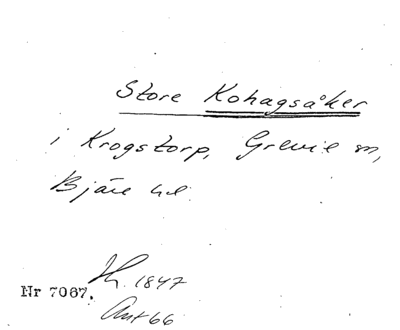 Store Kohagsåker
i Krogstorp, Grevie sn,
Bjäre hd.
Nr 7067.
1847
Ant 66